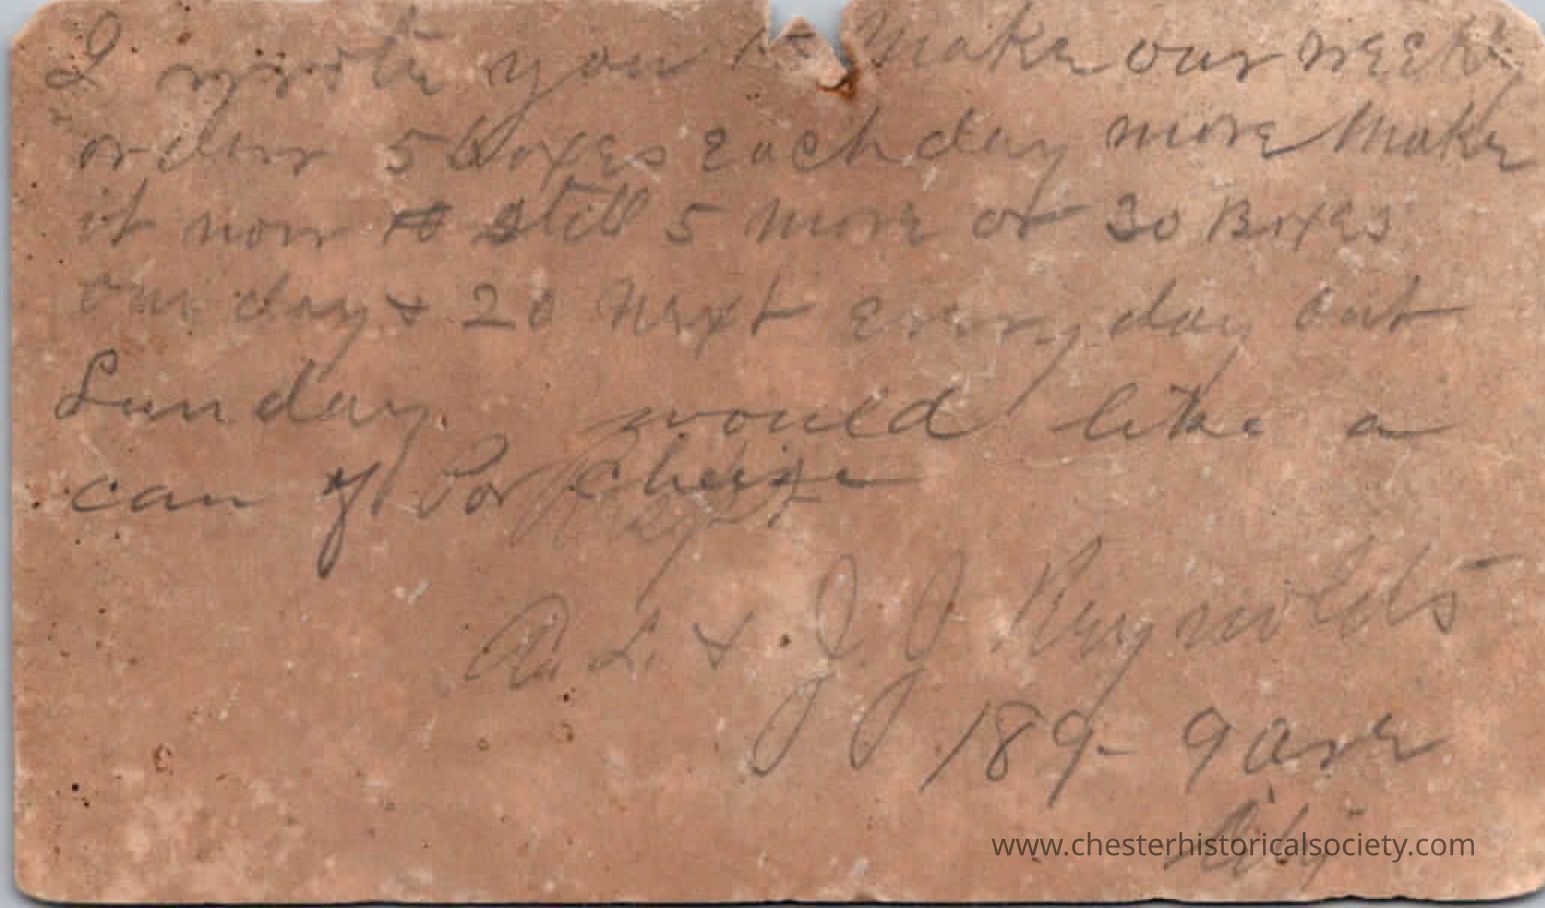 I wrote you to Make our weekly
orders 5 boxes each day more Make
it now still 5 more or 30 Boxes
one day & 20 Next every day but
Sunday. would like a
can of Pot cheese
Resp.
A. L. & J. J. Reynolds
189- 9 ave
City
www.chesterhistoricalsociety.com